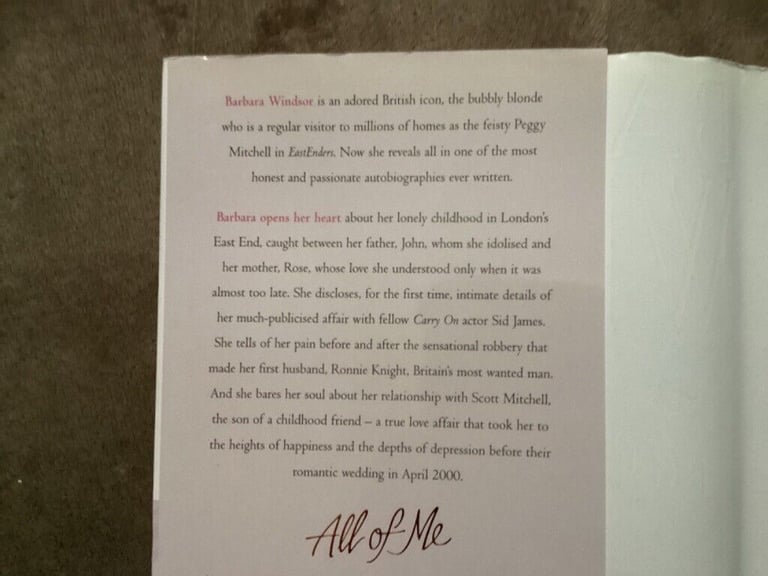 Barbara Windsor is an adored British icon, the bubbly blonde
who is a regular visitor to millions of homes as the feisty Peggy
Mitchell in EastEnders. Now she reveals all in one of the most
honest and passionate autobiographies ever written.
Barbara opens her heart about her lonely childhood in London's
East End, caught between her father, John, whom she idolised and
her mother, Rose, whose love she understood only when it was
almost too late. She discloses, for the first time, intimate details of
her much-publicised affair with fellow Carry On actor Sid James.
She tells of her pain before and after the sensational robbery that
made her first husband, Ronnie Knight, Britain's most wanted man.
And she bares her soul about her relationship with Scott Mitchell,
the son of a childhood friend – a true love affair that took her to
the heights of happiness and the depths of depression before their
romantic wedding in April 2000.
All of Me